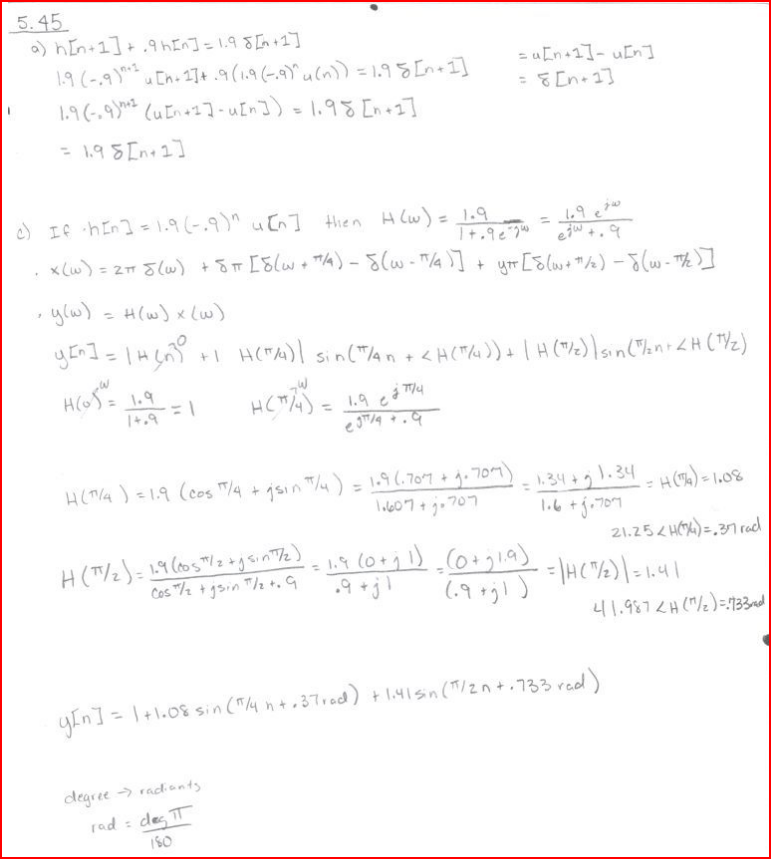 5.45
a) h[n+1] + .9h[n] = 1.9 δ[n+1]
1.9 (-.9)ⁿ⁺¹ u[n+1] + .9 (1.9 (-.9)ⁿ u(n)) = 1.9 δ[n+1]
= u[n+1] - u[n]
= δ[n+1]
1.9 (-.9)ⁿ⁺¹ (u[n+1] - u[n]) = 1.9 δ[n+1]
= 1.9 δ[n+1]
c) If h[n] = 1.9 (-.9)ⁿ u[n] then H(ω) = 1.9 / (1 + .9e^-jω) = 1.9 e^jω / (e^jω + .9)
x(ω) = 2π δ(ω) + δπ [δ(ω + π/4) - δ(ω - π/4)] + yπ [δ(ω + π/2) - δ(ω - π/2)]
y(ω) = H(ω) x(ω)
y[n] = |H(n)⁰ + 1 H(π/4)| sin(π/4n + <H(π/4)) + |H(π/2)| sin(π/2n + <H(π/2)
H(0) = 1.9 / (1+.9) = 1 H(π/4) = 1.9 e^jπ/4 / (e^jπ/4 + .9)
H(π/4) = 1.9 (cos π/4 + jsin π/4) = 1.9 (.707 + j.707) / (1.607 + j.707) = (1.34 + j1.34) / (1.6 + j.707) = H(π/4) = 1.08
21.25 <H(π/4) = .37 rad
H(π/2) = 1.9 (cos π/2 + jsin π/2) / (cos π/2 + jsin π/2 + .9) = 1.9 (0 + j1) / (.9 + j1) = (0 + j1.9) / (.9 + j1) = |H(π/2)| = 1.41
41.987 <H(π/2) = .733rad
y[n] = 1 + 1.08 sin(π/4 n + .37rad) + 1.41 sin(π/2 n + .733 rad)
degree → radiants
rad = deg π / 180